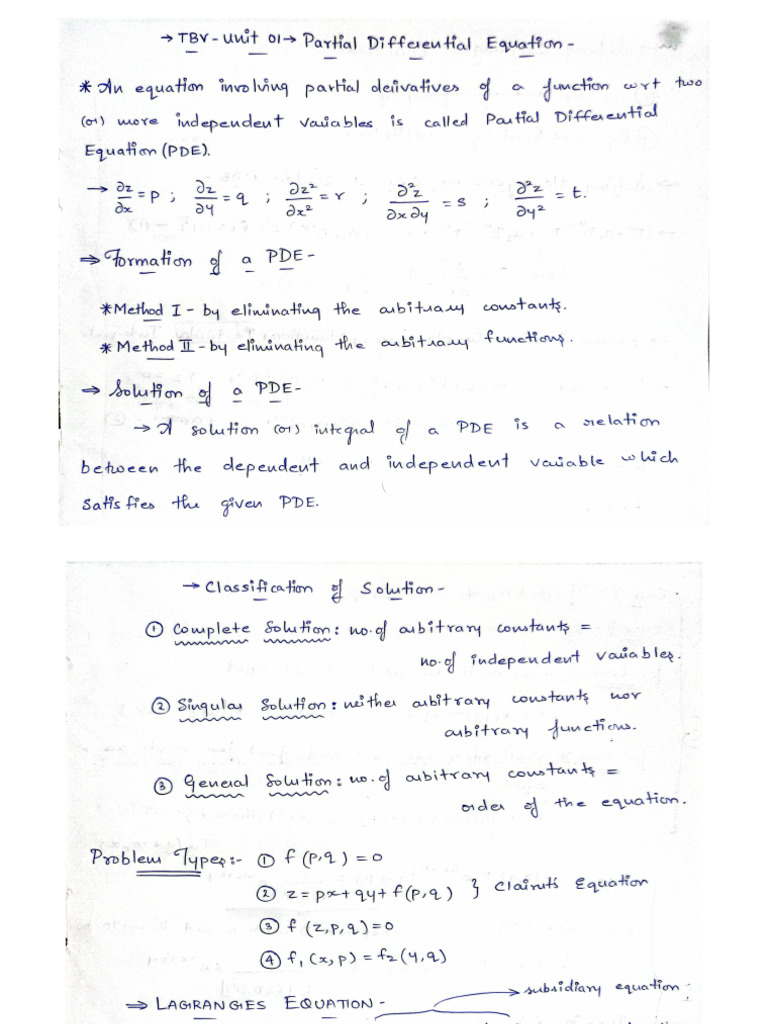 → TBV - Unit 01 → Partial Differential Equation -
* An equation involving partial derivatives of a function wrt two
(or) more independent variables is called Partial Differential
Equation (PDE).
→ ∂z/∂x = p ; ∂z/∂y = q ; ∂z²/∂x² = r ; ∂²z/∂x∂y = s ; ∂²z/∂y² = t.
⇒ Formation of a PDE -
* Method I - by eliminating the arbitrary constants.
* Method II - by eliminating the arbitrary functions.
⇒ Solution of a PDE -
→ A solution (or) integral of a PDE is a relation
between the dependent and independent variable which
satisfies the given PDE.
→ Classification of Solution -
① Complete Solution: no. of arbitrary constants =
no. of independent variables.
② Singular Solution: neither arbitrary constants nor
arbitrary functions.
③ General Solution: no. of arbitrary constants =
order of the equation.
Problem Types:- ① f (p,q) = 0
② z = px + qy + f(p,q) } Clairut's Equation
③ f (z,p,q) = 0
④ f₁ (x,p) = f₂ (y,q)
→ subsidiary equation -
⇒ LAGRANGIES EQUATION -